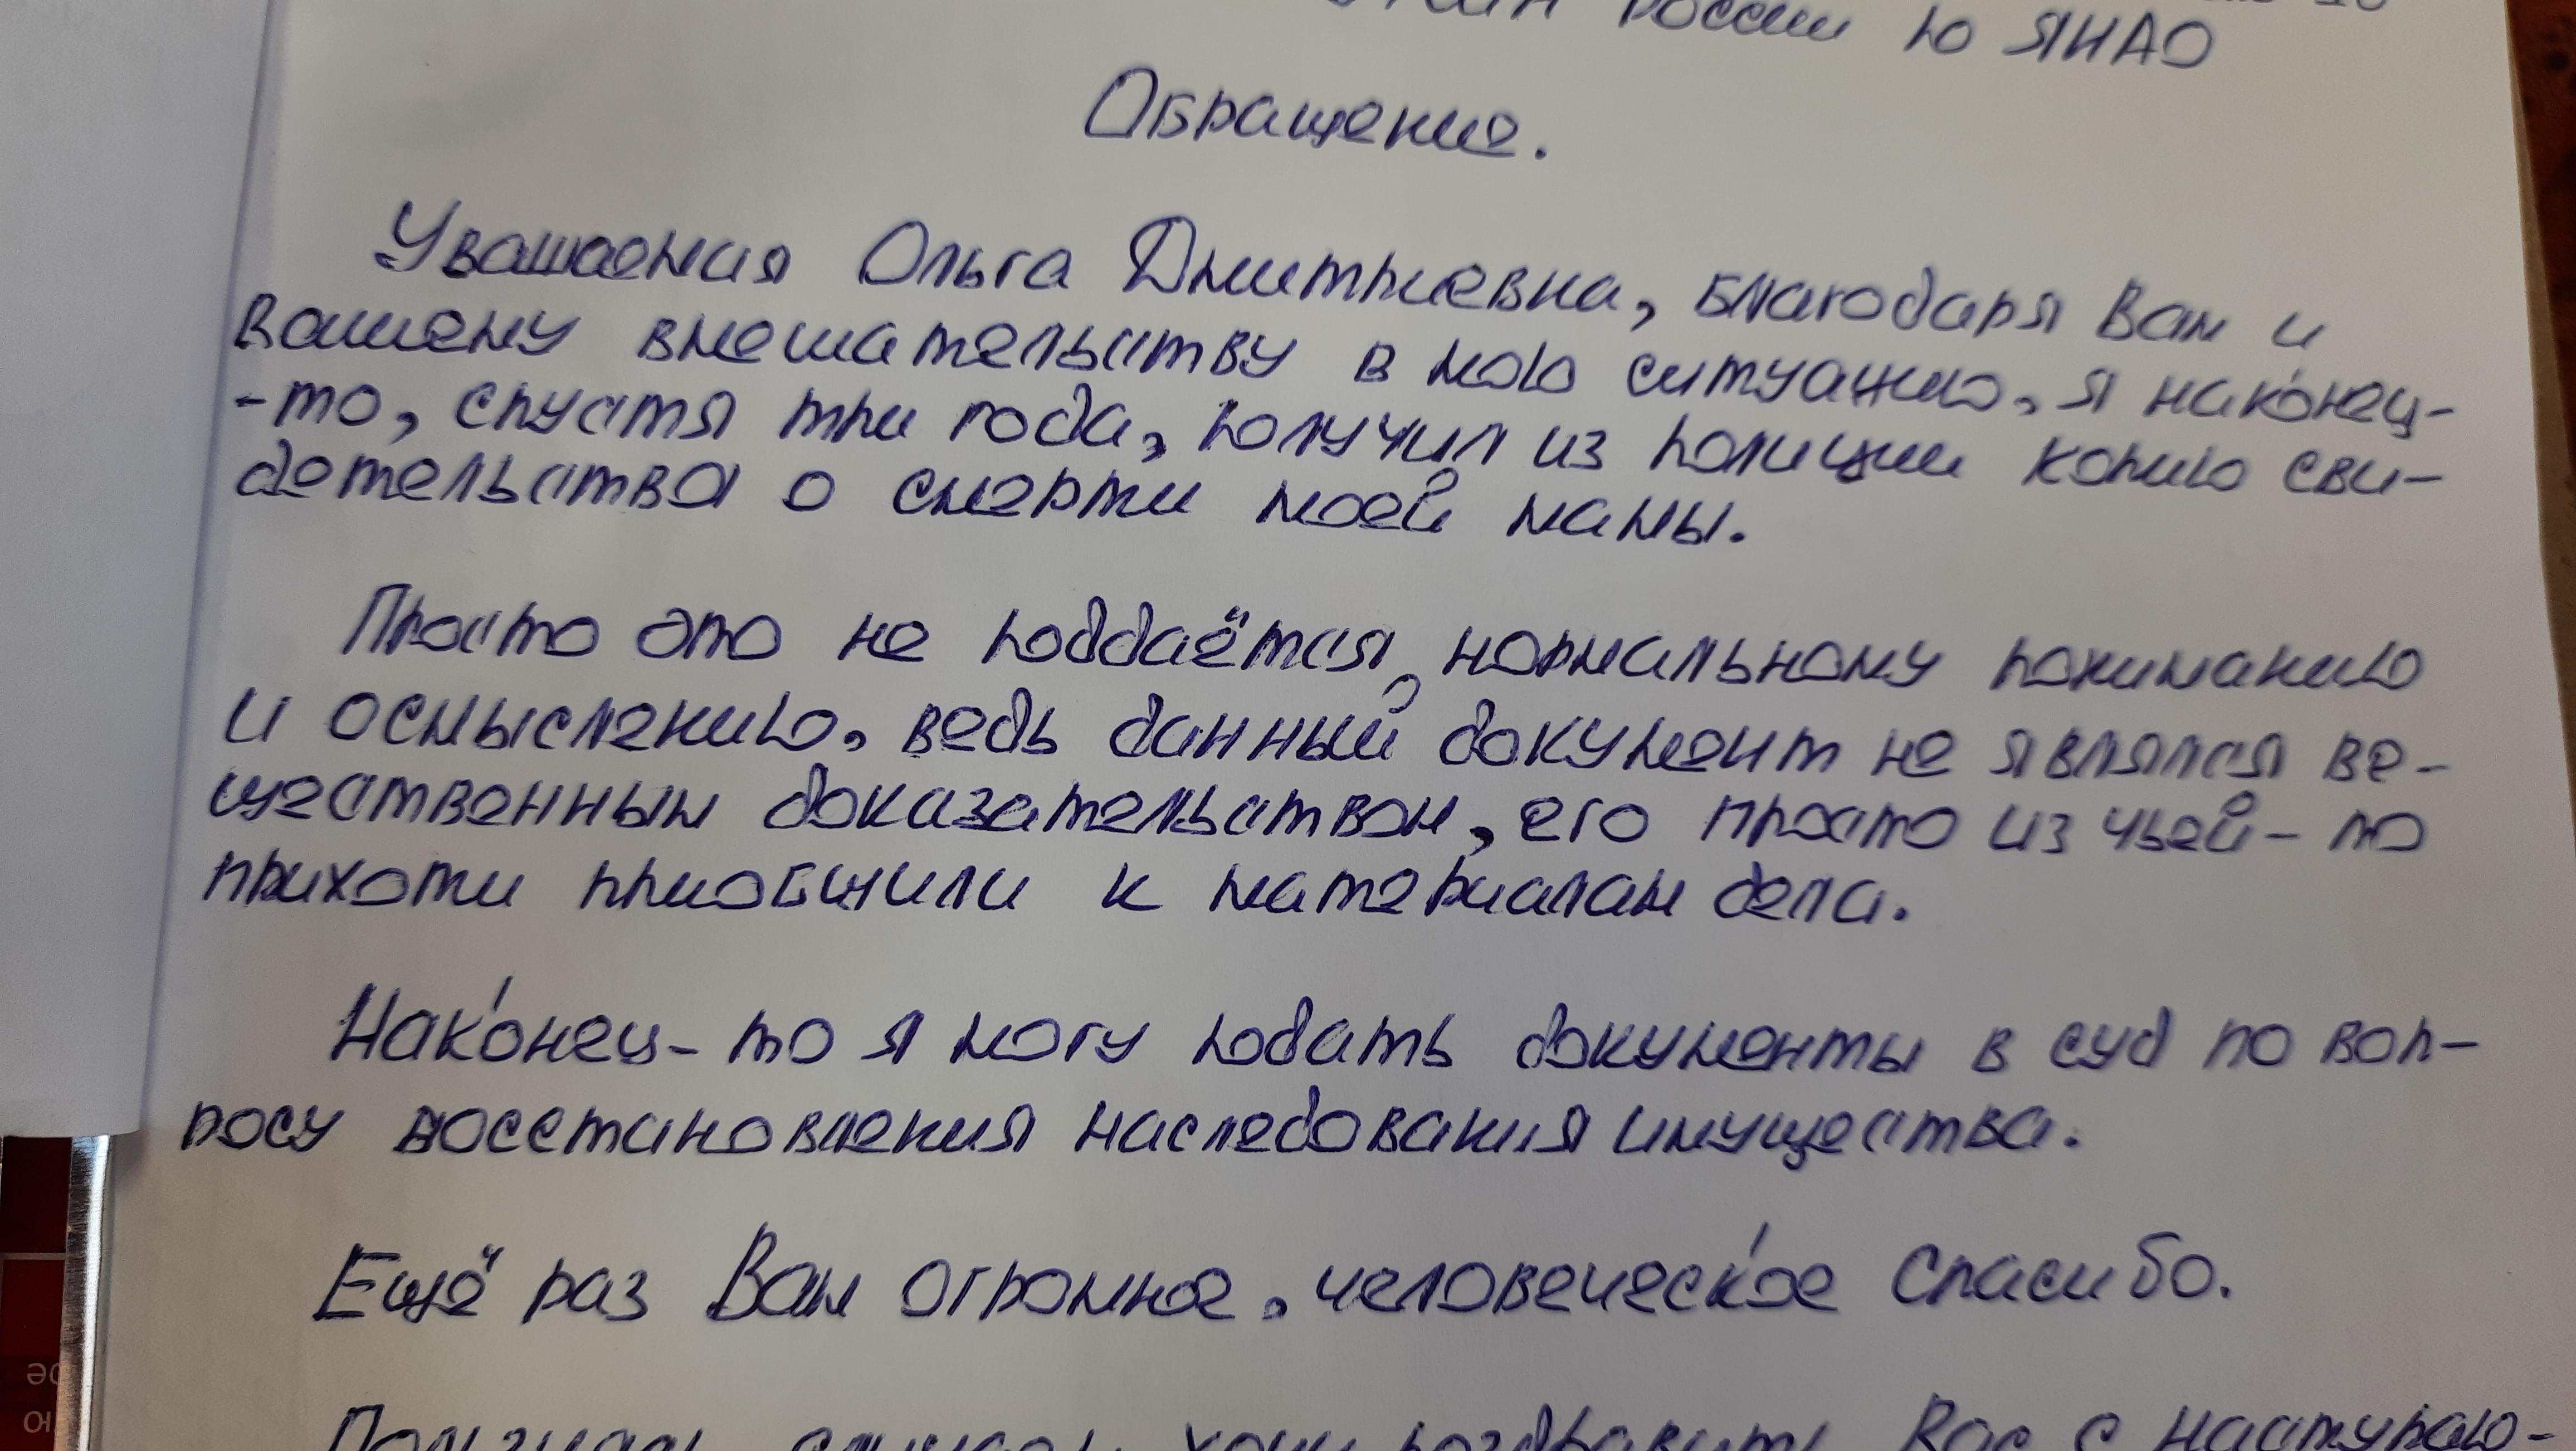 России по ЯНАО
Обращение.
Уважаемая Ольга Дмитриевна, благодаря Вам и
Вашему вмешательству в мою ситуацию, я наконец-
-то, спустя три года, получил из полиции копию сви-
детельства о смерти моей мамы.
Просто это не поддаётся нормальному пониманию
и осмыслению, ведь данный документ не являлся ве-
щественным доказательством, его просто из чьей-то
прихоти приобщили к материалам дела.
Наконец-то я могу подать документы в суд по воп-
росу восстановления наследования имущества.
Ещё раз Вам огромное, человеческое Спасибо.
Пользуясь случаем, хочу поздравить Вас с наступаю-